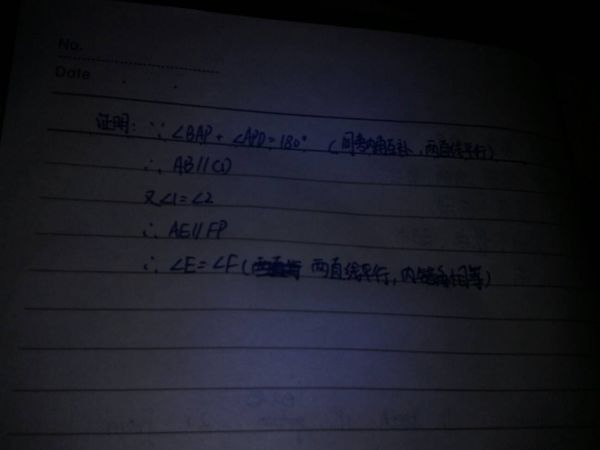 No.
Date
证明: ∵ ∠BAP + ∠APD = 180° (同旁内角互补, 两直线平行)
∴ AB // CD
又∠1 = ∠2
∴ AE // FP
∴ ∠E = ∠F ( 两直线平行, 内错角相等)